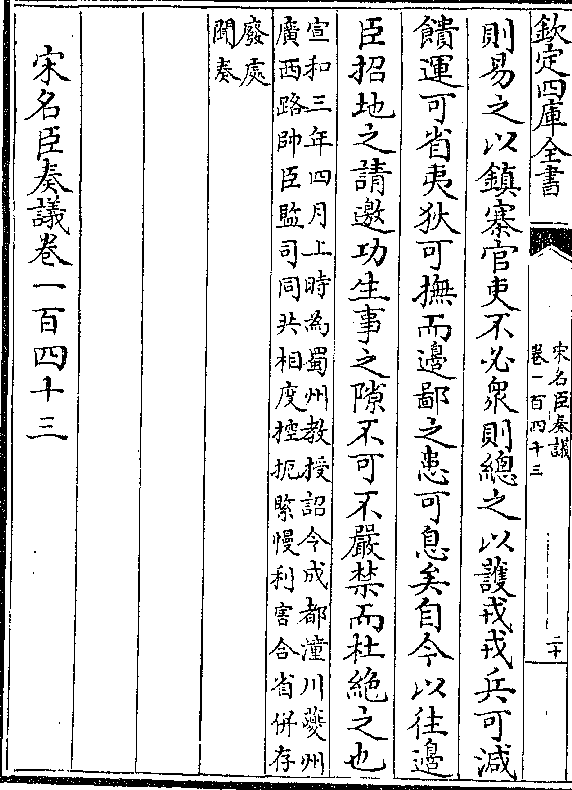 欽定四庫全書
宋名臣奏議
卷一百四十三
二十
則易之以鎮寨官吏不必衆則總之以護戎戎兵可減
饋運可省夷狄可撫而邊鄙之患可息矣自今以往邊
臣招地之請邀功生事之隙不可不嚴禁而杜絶之也
宣和三年四月上時為蜀州教授詔令成都潼川夔州
廣西路帥臣監司同共相度控扼緊慢利害合省併存
廢處
聞奏
宋名臣奏議卷一百四十三